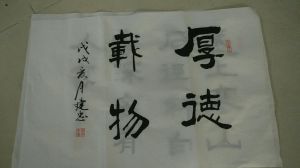 厚德
載物
戊戌亥月建忠